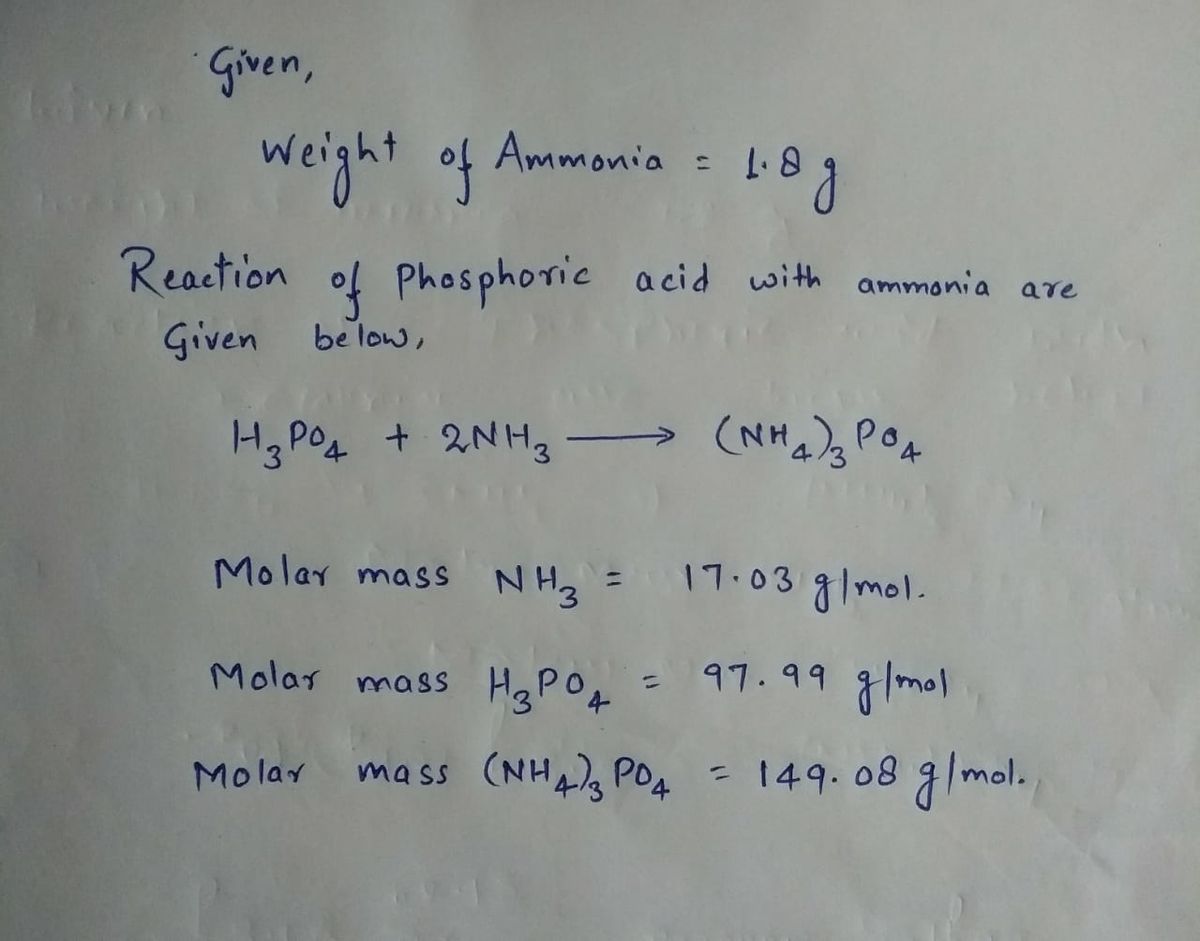 Given,
Weight of Ammonia = 1.8 g
Reaction of Phosphoric acid with ammonia are
Given below,
H₃PO₄ + 2NH₃ ⟶ (NH₄)₃PO₄
Molar mass NH₃ = 17.03 g/mol.
Molar mass H₃PO₄ = 97.99 g/mol
Molar mass (NH₄)₃PO₄ = 149.08 g/mol.